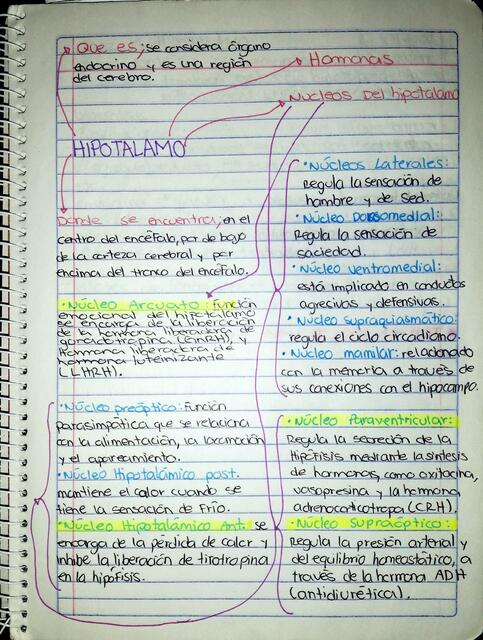 Que es; se considera órgano
endocrino y es una región
del cerebro.
Hormonas
Nucleos Del hipotalamo
HIPOTALAMO
Donde se encuentra; en el
centro del encéfalo, por de bajo
de la corteza cerebral y por
encima del tronco del encéfalo.
• Núcleo Arcuato: Función
emocional del hipotálamo
se encarga de la liberación
de la hormona liberadora de
gonadotropina (GnRH), y
Hormona liberadora de
hormona luteinizante
(LHRH).
• Núcleo preóptico: Función
parasimpática que se relaciona
con la alimentación, la locomoción
y el apareamiento.
• Núcleo Hipotalámico post.
mantiene el calor cuando se
tiene la sensación de Frío.
• Núcleo Hipotalámico Ant. se
encarga de la pérdida de calor y
inhibe la liberación de tirotropina
en la hipófisis.
• Núcleos Laterales:
Regula la sensación de
hambre y de Sed.
• Núcleo Dorsomedial:
Regula la sensación de
saciedad.
• Núcleo ventromedial:
está implicado en conductas
agrecivas y defensivas.
• Núcleo supraquiasmático:
regula el ciclo circadiano.
• Núcleo mamilar: relacionado
con la memoria a través de
sus conexiones con el hipocampo.
• Núcleo Paraventricular:
Regula la secreción de la
Hipófisis mediante la síntesis
de hormonas, como oxitocina,
vasopresina y la hormona
adrenocorticotropa (CRH).
• Núcleo Supraóptico:
Regula la presión arterial y
del equilibrio homeostático, a
través de la hormona ADH
(antidiurética).